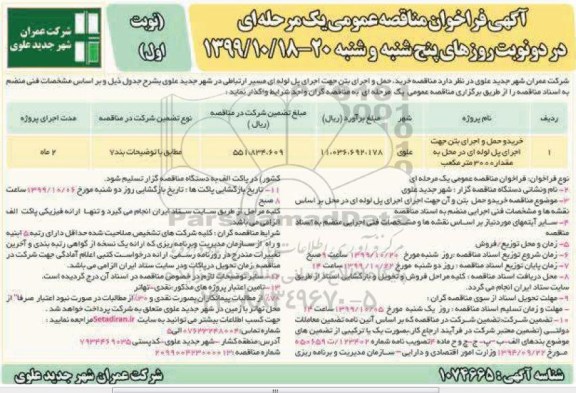 آگهی فراخوان مناقصه عمومی یک مرحله ای
در دو نوبت روزهای پنج شنبه و شنبه ۲۰-۱۳۹۹/۱۰/۱۸
(نوبت اول)
شرکت عمران
شهر جدید علوی
شرکت عمران شهر جدید علوی در نظر دارد مناقصه خرید، حمل و اجرای بتن جهت اجرای پل لوله ای مسیر ارتباطی در شهر جدید علوی بشرح جدول ذیل و بر اساس مشخصات فنی منضم
به اسناد مناقصه را از طریق برگزاری مناقصه عمومی یک مرحله ای به مناقصه گران واجد شرایط واگذار نماید:
ردیف
نام پروژه
شهر
مبلغ برآورد (ریال)
مبلغ تضمین شرکت در مناقصه (ریال)
نوع تضمین شرکت در مناقصه
مدت اجرای پروژه
۱
خرید و حمل و اجرای بتن جهت
اجرای پل لوله ای در محل به
مقدار ۳۰۰۰ متر مکعب
علوی
۱۱،۰۳۶،۶۹۲،۱۷۸
۵۵۱،۸۳۴،۶۰۹
مطابق با توضیحات بند۷
۲ ماه
نوع فراخوان: فراخوان مناقصه عمومی یک مرحله ای
۲- نام ونشانی دستگاه مناقصه گزار: شهر جدید علوی
۳- موضوع مناقصه خرید و حمل بتن و آن جهت اجرای اجرای پل لوله ای در محل بر اساس
نقشه ها و مشخصات فنی اجرایی منضم به اسناد مناقصه
۴- سایر آیتمهای مورد نیاز بر اساس نقشه ها و مشخصات فنی اجرایی منضم به اسناد
مناقصه
۵- زمان و محل توزیع/فروش
۶- زمان شروع توزیع اسناد مناقصه: روز شنبه مورخ ۱۳۹۹/۱۰/۲۰ ساعت ۹ صبح
۷- زمان پایان توزیع اسناد مناقصه: روز دو شنبه مورخ ۱۳۹۹/۱۰/۲۲ ساعت ۱۴
۸- محل دریافت اسناد مناقصه: کلیه مراحل فروش و تحویل و بازگشایی اسناد از طریق
سایت ستاد ایران انجام می گردد.
۹- مهلت تحویل اسناد از سوی مناقصه گران:
مهلت و زمان تسلیم اسناد مناقصه: روز یک شنبه مورخ ۱۳۹۹/۱۱/۰۵ ساعت ۱۴
۱۰- تضمین شرکت: تضمین شرکت در مناقصه که بر اساس آئین نامه تضمین معاملات
دولتی (تضمین معتبر شرکت در فرآیند ارجاع کار بصورت یک یا ترکیبی از تضمین های
موضوع بندهای الف-ب-پ-ج-چ و ح ماده ۴ تصویب نامه شماره ۱۲۳۴۰۲/ت ۵۰۶۵۹
مورخ ۱۳۹۴/۰۹/۲۲ وزارت امور اقتصادی و دارایی-سازمان مدیریت و برنامه ریزی
کشور) در پاکت الف به دستگاه مناقصه گزار تسلیم شود.
۱۱- تاریخ بازگشایی پاکت ها: تاریخ بازگشایی روز دو شنبه مورخ ۱۳۹۹/۱۱/۰۶ ساعت
۸ صبح
کلیه مراحل بر طریق سایت ستاد ایران انجام می گیرد و تنها ارائه فیزیکی پاکت الف
الزامی می باشد.
شرایط مناقصه گران: کلیه شرکت های تشخیص صلاحیت شده حداقل دارای رتبه ۵ ابنیه
و راه از سازمان مدیریت وبرنامه ریزی که ارائه یک نسخه از گواهی رتبه بندی و آخرین
تغییرات مندرج در روزنامه رسمی، ارائه درخواست کتبی اعلام آمادگی جهت شرکت در
مناقصه زمان تحویل پاکات ودر سایت ستاد ایران الزامی می باشد.
۱۲- سایر توضیحات لازم در خصوص مناقصه در اسناد آن درج گردیده است.
۱۳- تامین اعتبار پروژه های مذکور نقدی-تهاتر
۷۰٪ از مطالبات پیمانکاران بصورت نقدی و ۳۰٪ از مطالبات در صورت نبود اعتبار صرفا از
محل تهاتر با زمین در شهر جدید علوی متعلق به شرکت عمران انجام خواهد شد.
جهت کسب اطلاعات بیشتر می توانید به سایت Setadiran.ir مراجعه نمایید:
آدرس: منطقه گشار-شهر جدید علوی-کدپستی ۷۹۳۴۴۶۹۰۳۵
شناسه آگهی: ۱۰۷۴۶۶۵
شرکت عمران شهر جدید علوی